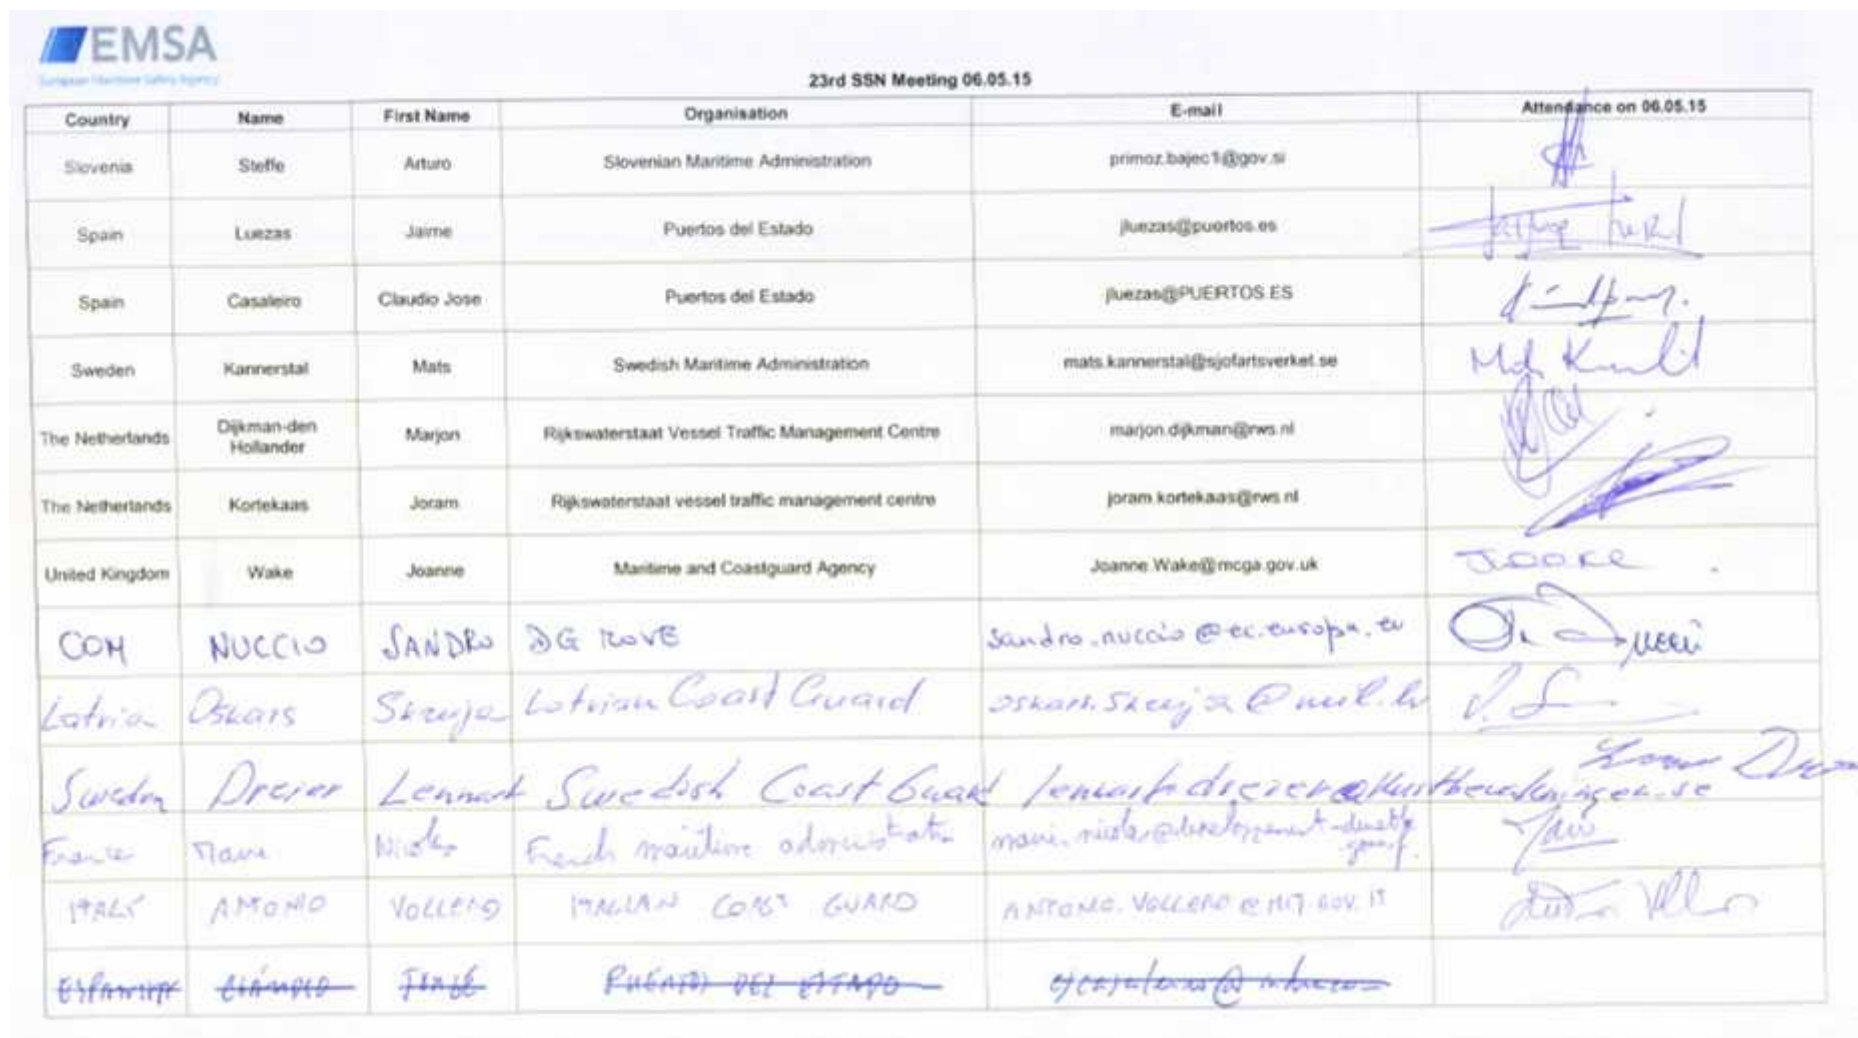 EMSA
European Maritime Safety Agency
23rd SSN Meeting 06.05.15
Country Name First Name Organisation E-mail Attendance on 06.05.15
Slovenia Steffe Arturo Slovenian Maritime Administration primoz.bajec1@gov.si
Spain Luezas Jaime Puertos del Estado jluezas@puertos.es
Spain Casaleiro Claudio Jose Puertos del Estado jluezas@PUERTOS.ES
Sweden Kannerstal Mats Swedish Maritime Administration mats.kannerstal@sjofartsverket.se
The Netherlands Dijkman-den Hollander Marjon Rijkswaterstaat Vessel Traffic Management Centre marjon.dijkman@rws.nl
The Netherlands Kortekaas Joram Rijkswaterstaat vessel traffic management centre joram.kortekaas@rws.nl
United Kingdom Wake Joanne Maritime and Coastguard Agency Joanne.Wake@mcga.gov.uk
COM NUCCIO SANDRO DG MOVE sandro.nuccio@ec.europa.eu
Latvia Oskars Skrauja Latvian Coast Guard
Sweden Dreier Lennart Swedish Coast Guard lennart.dreier@kustbevakningen.se
France Nicolas French maritime administration
ITALY ANTONIO VOLLERO ITALIAN COAST GUARD ANTONIO.VOLLERO@MIT.GOV.IT